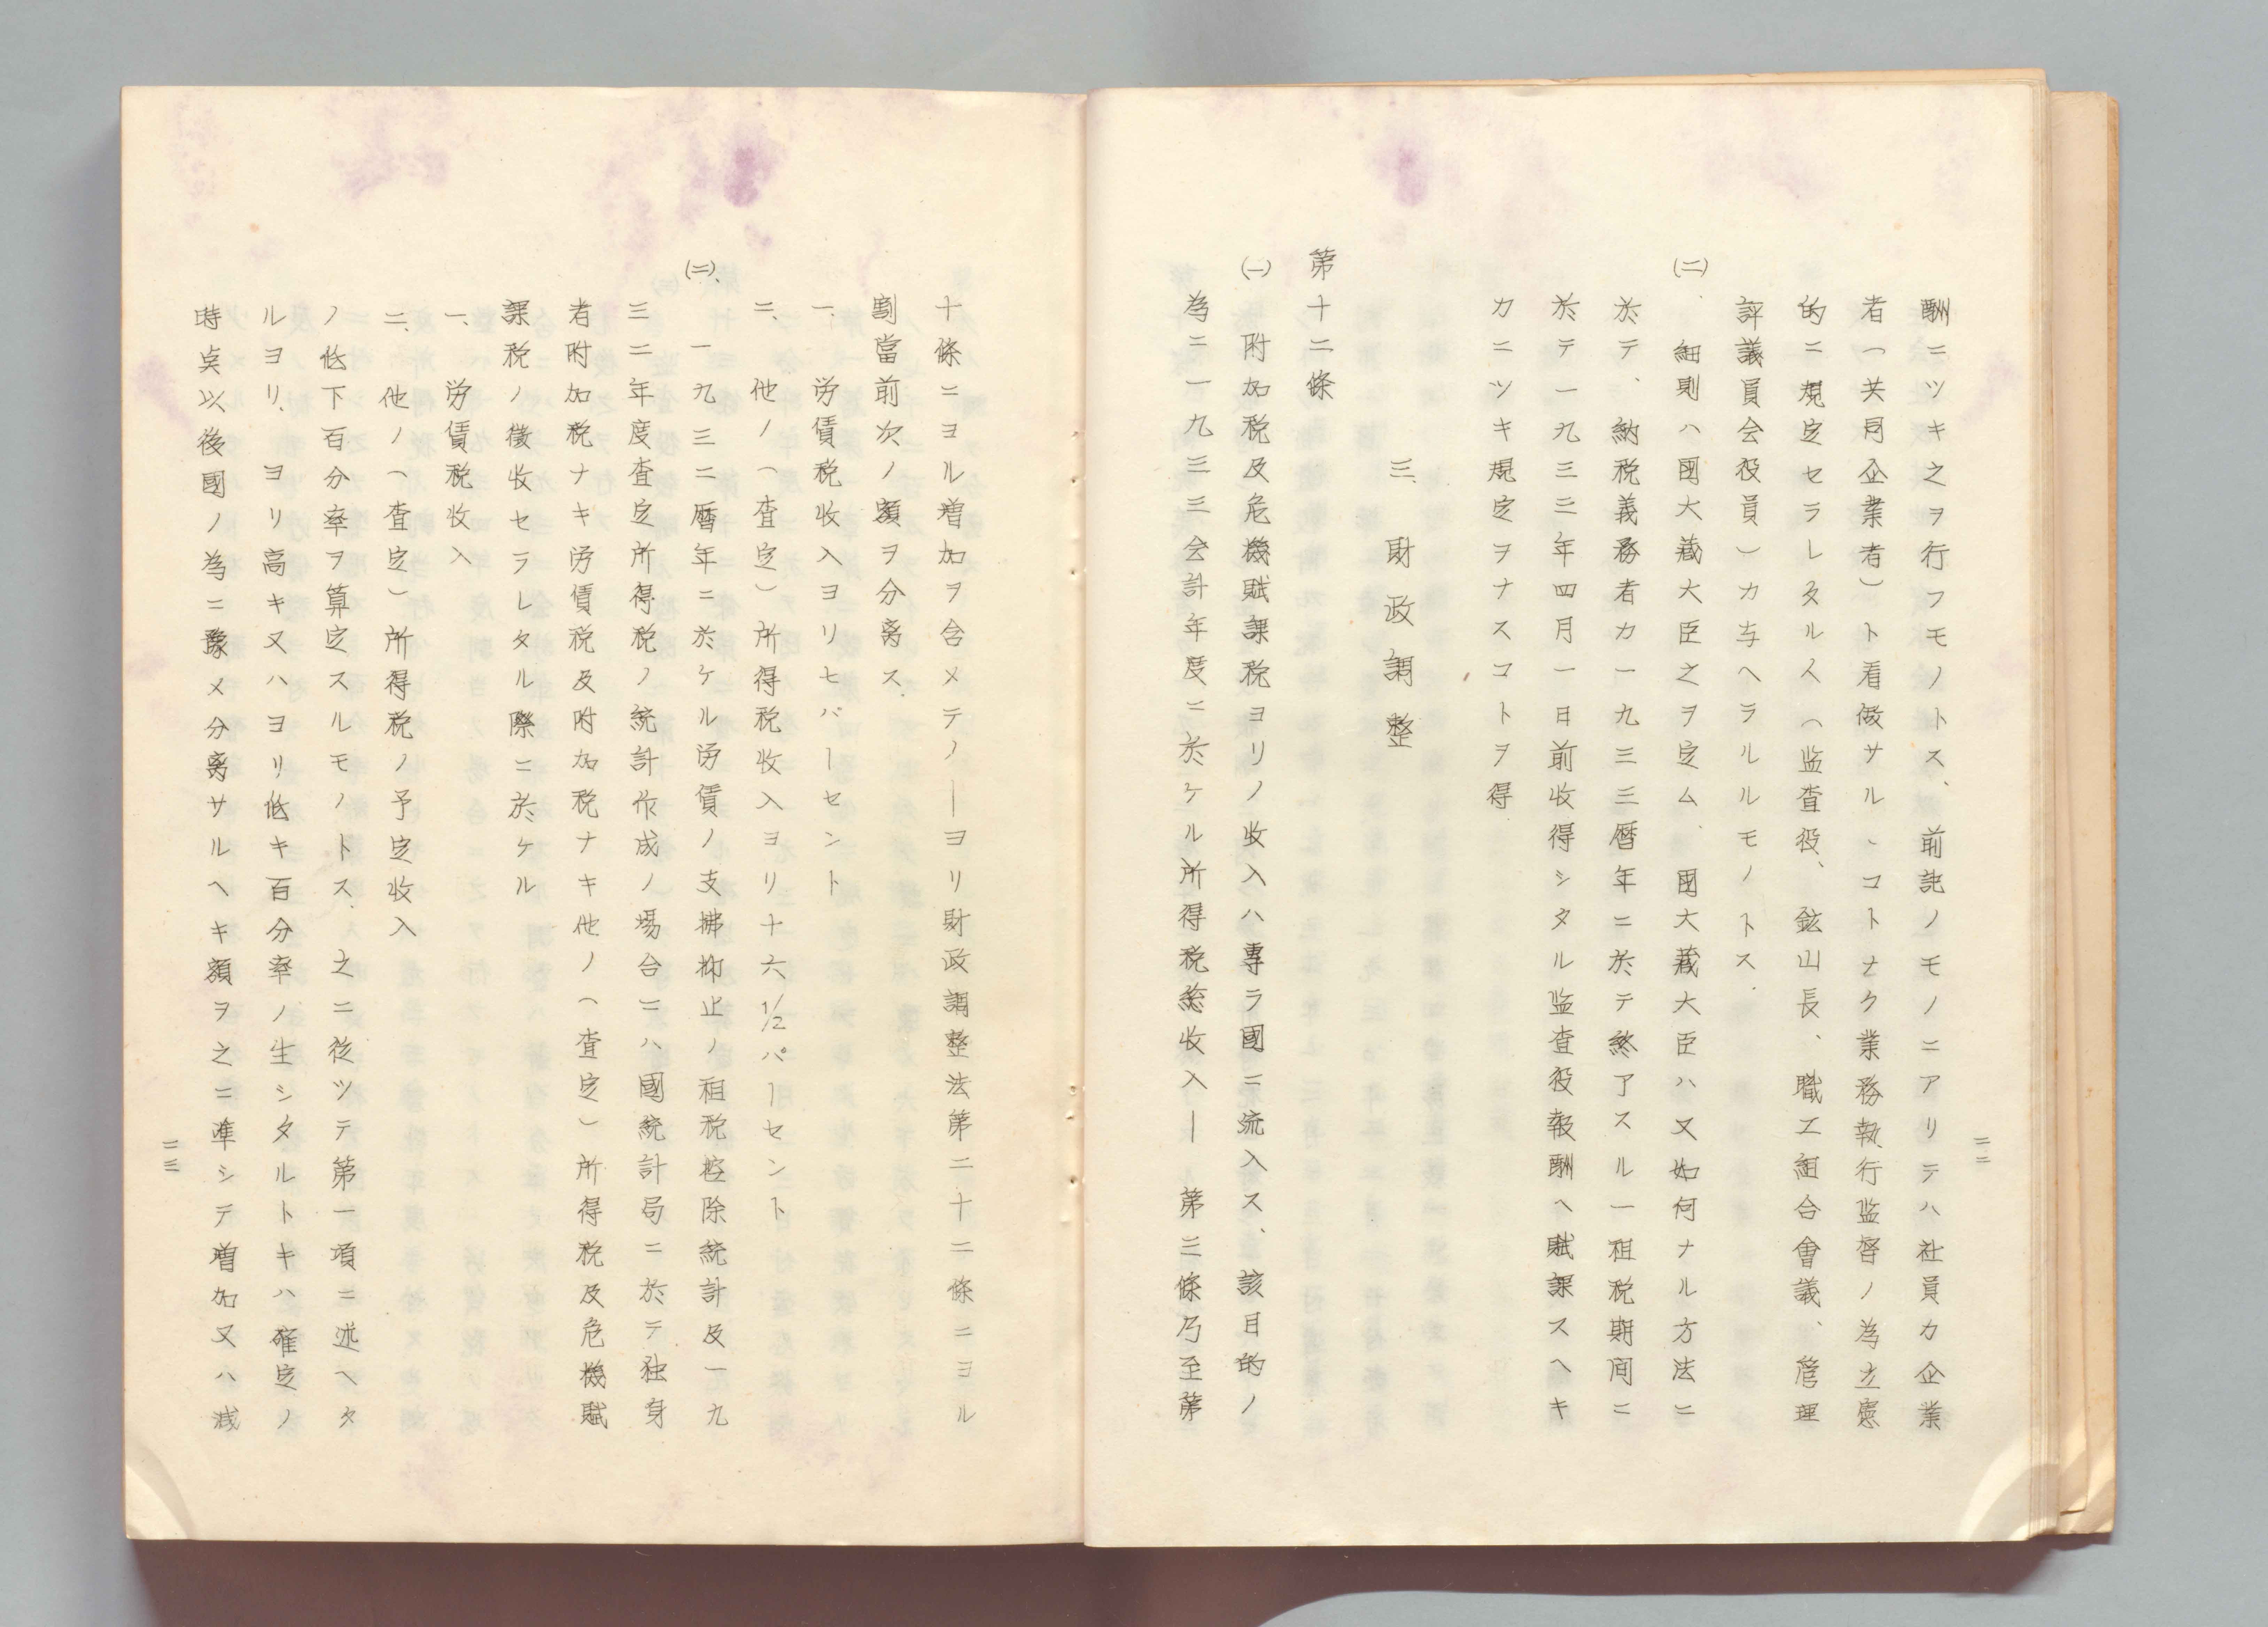 酬ニツキ之ヲ行フモノトス、前記ノモノニアリテハ社員カ企業
者(共同企業者)ト看做サルヽコトナク業務執行監督ノ為立憲
的ニ規定セラレタル人(監査役、鉱山長、職工組合會議、管理
評議員会役員)カ与ヘラルルモノトス.
(二)、細則ハ國大藏大臣之ヲ定ム、國大藏大臣ハ又如何ナル方法ニ
於テ、納税義務者カ一九三三暦年ニ於テ終了スル一租税期間ニ
於テ一九三三年四月一日前收得シタル監査役報酬ヘ賦課スヘキ
カニツキ規定ヲナスコトヲ得
三、財政調整
第十二條
(一)附加税及危機賦課税ヨリノ收入ハ專ラ國ニ流入ス、該目的ノ
為ニ一九三三会計年度ニ於ケル所得税総收入—第三條乃至第
二二
十條ニヨル増加ヲ含メテノ—ヨリ財政調整法第二十二條ニヨル
割當前次ノ額ヲ分离ス.
一、労賃税收入ヨリ七パーセント
二、他ノ(査定)所得税收入ヨリ十六1/2パーセント
(二)、一九三二暦年ニ於ケル労賃ノ支拂抑止ノ租税控除統計及一九
三二年度査定所得税ノ統計作成ノ場合ニハ國統計局ニ於テ独身
者附加税ナキ労賃税及附加税ナキ他ノ(査定)所得税及危機賦
課税ノ徴收セラレタル際ニ於ケル
一、労賃税收入
二、他ノ(査定)所得税ノ予定收入
ノ低下百分率ヲ算定スルモノトス.之ニ従ツテ第一項ニ述ヘタ
ルヨリ、ヨリ高キ又ハヨリ低キ百分率ノ生シタルトキハ確定ノ
時点以後國ノ為ニ豫メ分离サルヘキ額ヲ之ニ準シテ増加又ハ減
二三